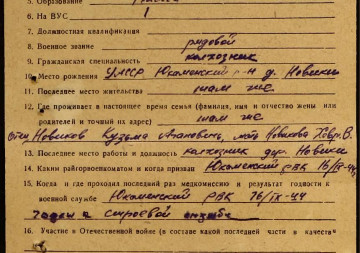 5. Образование
6. На ВУС 1
7. Должностная квалификация
8. Военное звание рядовой
9. Гражданская специальность колхозник
10. Место рождения УАССР Юкаменский р-н д. Новики
11. Последнее место жительства там же
12. Где проживает в настоящее время семья (фамилия, имя и отчество жены или
родителей и точный их адрес) там же
отец Новиков Кузьма мать Новикова
13. Последнее место работы и должность колхозник дер. Новики
14. Каким райгорвоенкоматом и когда призван Юкаменский РВК 16/IX-44
15. Когда и где проходил последний раз медкомиссию и результат годности к
военной службе Юкаменский РВК 16/IX-44
годен к строевой службе
16. Участие в Отечественной войне (в составе какой последней части и качестве